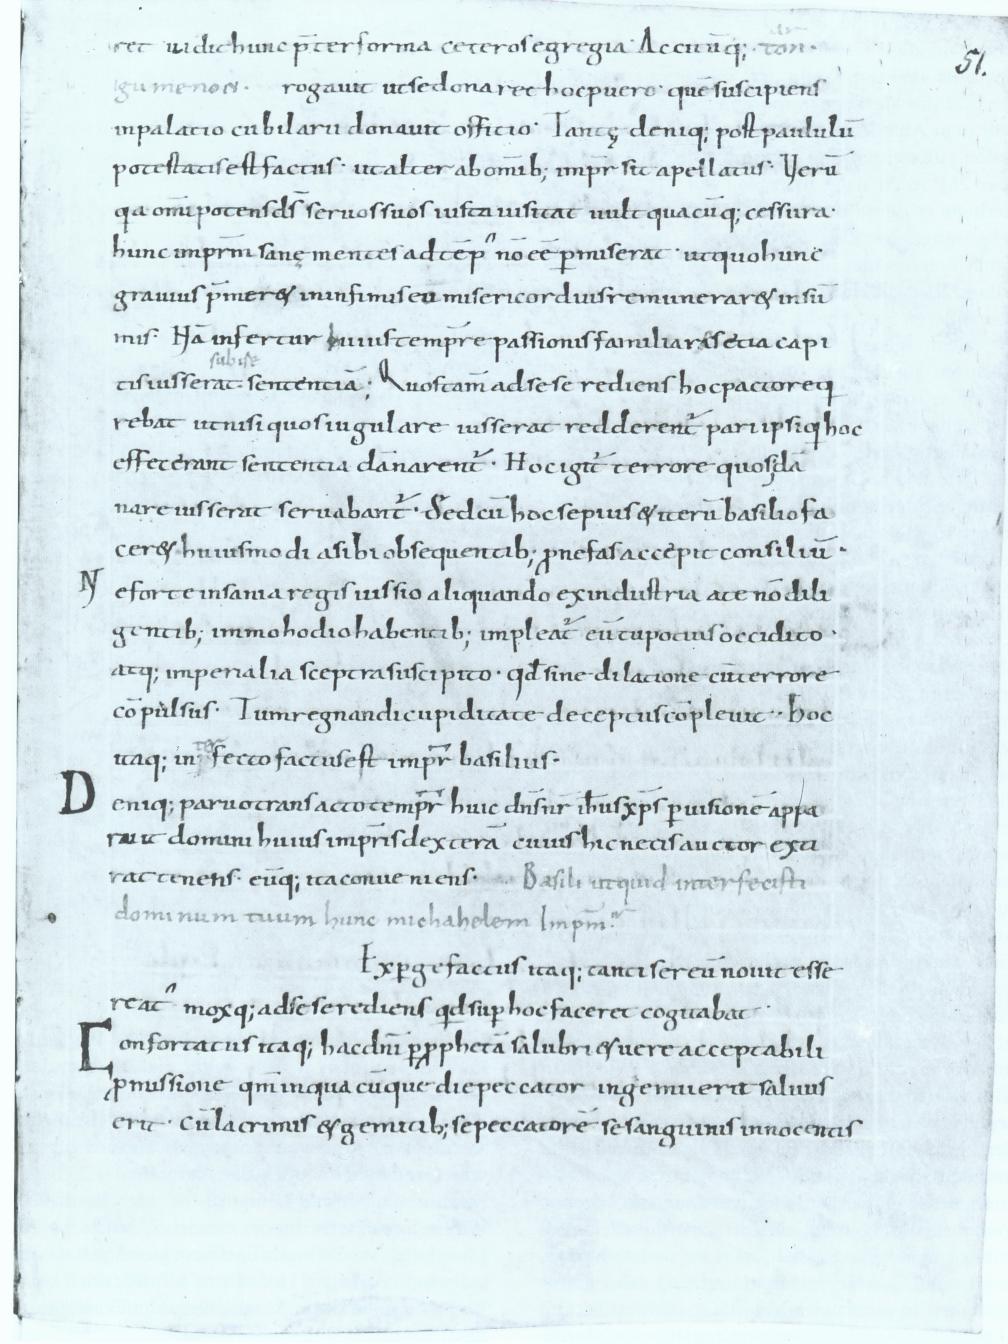 ret uidit hunc p̄ter forma ceteros egregia· Accitūq;
51.
gumenon· rogauit ut se donaret hoc puero· quē suscipiens
in palatio cubilarii donauit officio· Tantę deniq; post paululū
potestatis est factus· ut alter ab om̄ib; imp̄r sit apellatus· Verū
q̄a om̄ipotens d̄s seruos suos iusta uisitat uult quacūq; cessura·
hunc inp̄rm sanę mentes ad tēp n̄o ēe p̄miserat· ut quo hunc
grauius p̄mer& in infimis eū misericordius remunerar& in sū
mis· Nā infertur huius temp̄re passionis familiares etiā capi
subire
tis iusserat sententiā; Quos tam̄ ad se se rediens hoc pacto req
rebat ut nisi quos iugulare iusserat redderent᷑ pari ipsi q hoc
effecerant sententia dānarent᷑· Hoc igit᷑ terrore quos dā
nare iusserat seruabant᷑· Sed cū hoc sepius & iterū basilio fa
cer& huiusmodi a sibi obsequentib; ꝓ nefas accepit consiliū·
N
e forte insania regis iussio aliquando ex industria a te nō dili
gentib; immo hodio habentib; impleat᷑ eū tu potius occidito·
atq; imperialia sceptra suscipito· qđ sine dilatione cū terrore
cōpulsus· Tum regnandi cupiditate deceptus cōpleuit·· hoc
itaq; interfecto factus est imp̄r basilius·
D
eniq; paruo transacto temp̄r huic dn̄s n̄r ih̄us xp̄s p̱ uisionē appa
ruit domini huius imp̄ris dexterā cuius hic necis auctor exti
rat tenens· eūq; ita conueniens· Basili ut quid interfecisti
dominum tuum hunc michahelem Inp̄m
Exp̱gefactus itaq; tanti se reū nouit esse
reat᷑ moxq; ad se se rediens qđ sup̱ hoc faceret cogitabat·
C
onfortatus itaq; hac dn̄i p̱ ꝓphetā salubri & uere acceptabili
ꝓmissione qm̄ in quacūque die peccator ingemuerit saluus
erit· Cū lacrimis & gemitib; se peccatorē se sanguinis innocentis